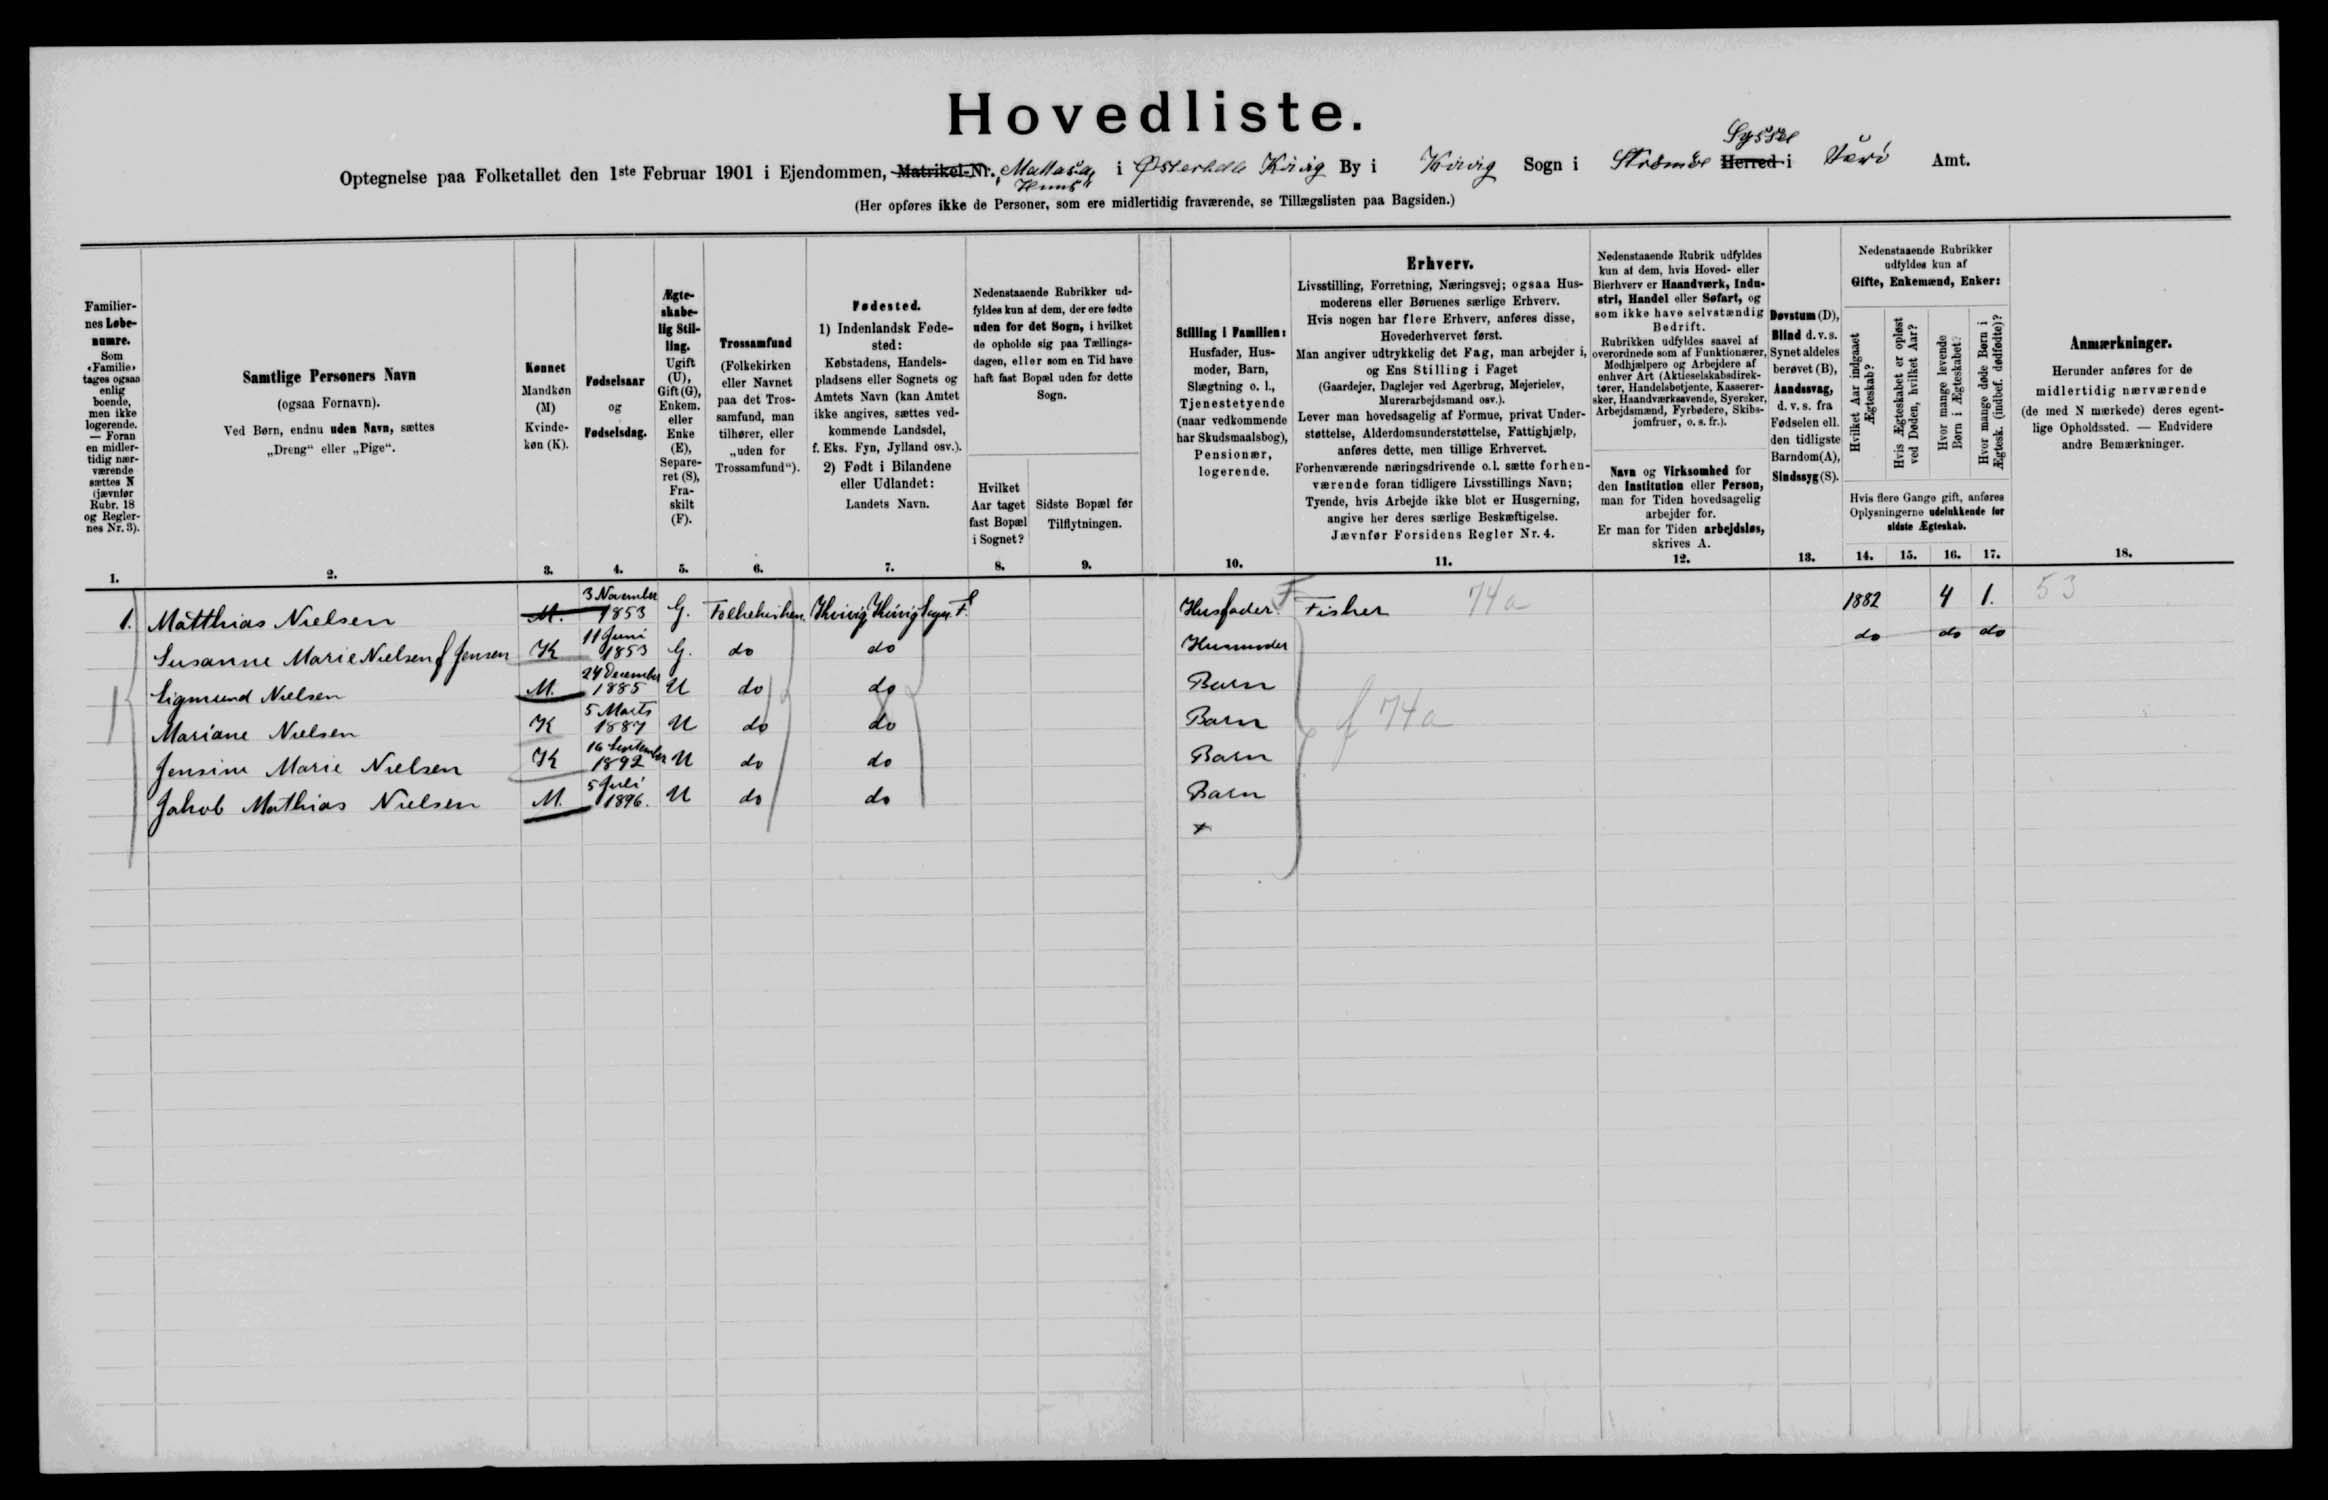 Hovedliste.
Optegnelse paa Folketallet den 1ste Februar 1901 i Ejendommen, Matrikel-Nr. i Kvivig By i Kvivig Sogn i Strømø Syssel Herred i Amt.
(Her opføres ikke de Personer, som ere midlertidig fraværende, se Tillægslisten paa Bagsiden.)
Familiernes Løbenumre.
Som «Familie» tages ogsaa enlig boende, men ikke logerende. — Foran en midlertidig nærværende sættes N (jævnfør Rubr. 18 og Reglernes Nr. 3).
1.
Samtlige Personers Navn
(ogsaa Fornavn).
Ved Børn, endnu uden Navn, sættes
„Dreng“ eller „Pige“.
2.
Kønnet
Mandkøn (M)
Kvindekøn (K).
3.
Fødselsaar
og
Fødselsdag.
4.
Ægteskabelig Stilling.
Ugift (U), Gift (G), Enkem. eller Enke (E), Separeret (S), Fraskilt (F).
5.
Trossamfund
(Folkekirken eller Navnet paa det Trossamfund, man tilhører, eller „uden for Trossamfund“).
6.
Fødested.
1) Indenlandsk Fødested:
Købstadens, Handelspladsens eller Sognets og Amtets Navn (kan Amtet ikke angives, sættes vedkommende Landsdel, f. Eks. Fyn, Jylland osv.).
2) Født i Bilandene eller Udlandet:
Landets Navn.
7.
Nedenstaaende Rubrikker udfyldes kun af dem, der ere fødte uden for det Sogn, i hvilket de opholde sig paa Tællingsdagen, eller som en Tid have haft fast Bopæl uden for dette Sogn.
Hvilket Aar taget fast Bopæl i Sognet?
8.
Sidste Bopæl før Tilflytningen.
9.
Stilling i Familien:
Husfader, Husmoder, Barn, Slægtning o. l., Tjenestetyende (naar vedkommende har Skudsmaalsbog), Pensionær, logerende.
10.
Erhverv.
Livsstilling, Forretning, Næringsvej; ogsaa Husmoderens eller Børnenes særlige Erhverv.
Hvis nogen har flere Erhverv, anføres disse, Hovederhvervet først.
Man angiver udtrykkelig det Fag, man arbejder i, og Ens Stilling i Faget
(Gaardejer, Daglejer ved Agerbrug, Mejerielev, Murerarbejdsmand osv.).
Lever man hovedsagelig af Formue, privat Understøttelse, Alderdomsunderstøttelse, Fattighjælp, anføres dette, men tillige Erhvervet.
Forhenværende næringsdrivende o. l. sætte forhenværende foran tidligere Livsstillings Navn;
Tyende, hvis Arbejde ikke blot er Husgerning, angive her deres særlige Beskæftigelse.
Jævnfør Forsidens Regler Nr. 4.
11.
Nedenstaaende Rubrik udfyldes kun af dem, hvis Hoved- eller Bierhverv er Haandværk, Industri, Handel eller Søfart, og som ikke have selvstændig Bedrift.
Rubrikken udfyldes saavel af overordnede som af Funktionærer, Medhjælpere og Arbejdere af enhver Art (Aktieselskabsdirektører, Handelsbetjente, Kasserersker, Haandværkssvende, Syersker, Arbejdsmænd, Fyrbødere, Skibsjomfruer, o. s. fr.).
Navn og Virksomhed for den Institution eller Person, man for Tiden hovedsagelig arbejder for.
Er man for Tiden arbejdsløs, skrives A.
12.
Døvstum (D), Blind d. v. s. Synet aldeles berøvet (B), Aandssvag, d. v. s. fra Fødselen ell. den tidligste Barndom (A), Sindssyg (S).
13.
Nedenstaaende Rubrikker udfyldes kun af
Gifte, Enkemænd, Enker:
Hvilket Aar indgaaet Ægteskab?
Hvis Ægteskabet er opløst ved Døden, hvilket Aar?
Hvor mange levende Børn i Ægteskabet?
Hvor mange døde Børn i Ægtesk. (indbef. dødfødte)?
Hvis flere Gange gift, anføres Oplysningerne udelukkende for sidste Ægteskab.
14. 15. 16. 17.
Anmærkninger.
Herunder anføres for de midlertidig nærværende (de med N mærkede) deres egentlige Opholdssted. — Endvidere andre Bemærkninger.
18.
1. Matthias Nielsen M. 3 November 1853 G. Folkekirken. Kvivig Husfader. F Fisker 74a 1882 4 1. 53
Susanne Marie Nielsen f Jensen K 11 Juni 1853 G. do do Husmoder do do do
Sigmund Nielsen M. 24 December 1885 U do do Barn
Mariane Nielsen K 5 Marts 1887 U do do Barn f 74a
Jensine Marie Nielsen K 16 September 1892 U do do Barn
Jakob Mathias Nielsen M. 5 Juli 1896. U do do Barn